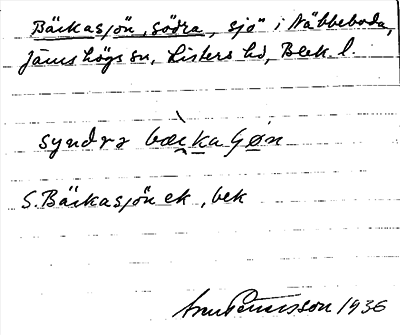 Bäckasjön, södra, sjö i Näbbeboda,
Jämshögs sn, Listers hd, Blek. l.
syndrɤ
S. Bäckasjön ek, bek
1936